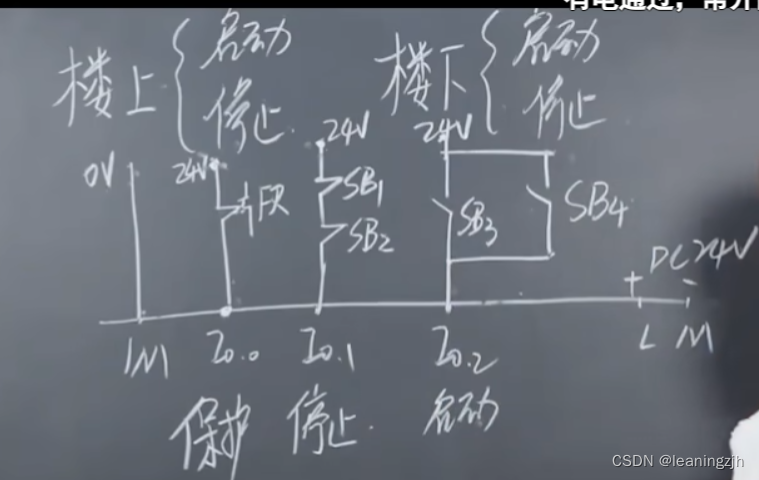 有电通过，常开
楼上 启动 停止
楼下 启动 停止
0V 24V FR 24V SB1 SB2 24V SB3 SB4
DC24V
+ -
1M I0.0 I0.1 I0.2 L M
保护 停止. 启动
CSDN @leaningzjh